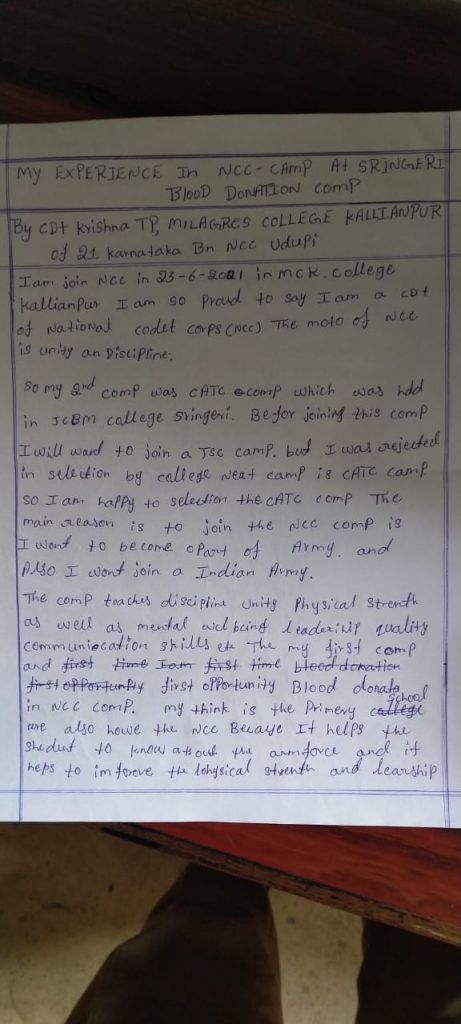 My EXPERIENCE In NCC-CAMP At SRINGERI
BlOOD DONATION comp
By CDt krishna TP, MILAGRES COLLEGE KALLIANPUR
of 21 karnataka Bn NCC Udupi
I am join NCC in 23-6-2021 in mck. college
kallianpur I am so proud to say I am a CDt
of National codet corps (NCC) The moto of NCC
is unity an Discipline.
So my 2nd comp was CATC comp which was hdd
in JCBM college Sringeri. Befor joining this comp
I will want to join a TSC camp. but I was rejected
in seledion by college Next camp is CATC camp
so I am happy to selection the CATC comp The
main reason is to join the NCC comp is
I wont to become a Part of Army. and
Also I wont join a Indian Army.
The comp teaches discipline Unity Physical Strenth
as well as mental wel being leaderiip quality
communiocation skills etc The my first comp
and first time I am first time bleed donation
first opportunity first opportunity Blood donate
in NCC comp. my think is the Primery college School
are also howe the NCC Becauje It helps the
shedent to know about the armforce and it
heps to imforove the lohysical strenth and learship